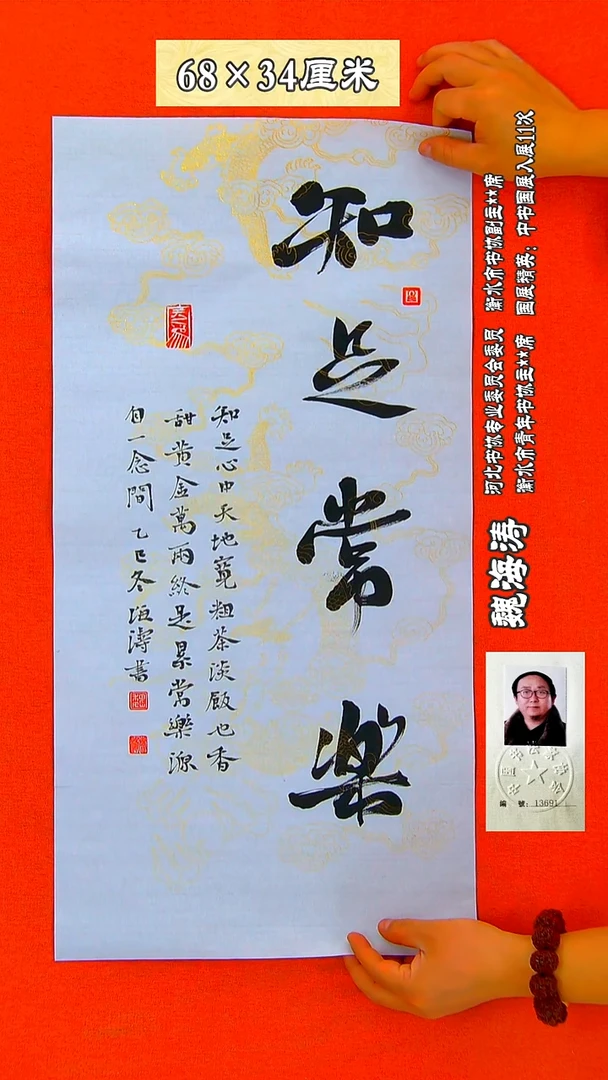 68×34厘米
知足常樂
知足心中天地寬粗茶淡飯也香
甜黃金萬兩終是累常樂源
自一念間 乙巳冬海濤書
河北书协专业委员会委员 衡水市书协副主**席
衡水市青年书协主**席 国展精英：中书国展入展11次
魏海涛
編號：13691